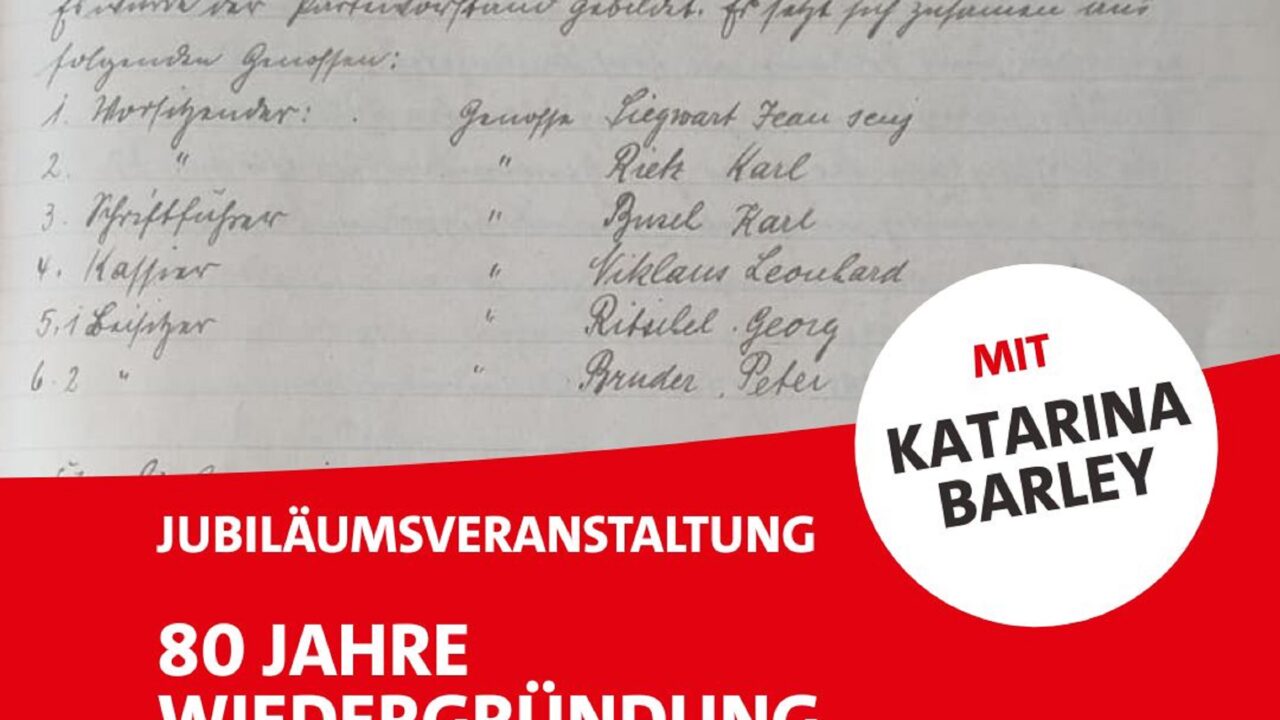 Es wurde der Parteivorstand gebildet. Er setzt sich zusamen aus
folgenden Genossen:
1. Vorsitzender: Genosse Siegwart Jean senj
2. " " Rietz Karl
3. Schriftführer " Busel Karl
4. Kassier " Niklaus Leonhard
5. 1 Beisitzer " Ritschel Georg
6. 2 " " Bruder, Peter
MIT
KATARINA
BARLEY
JUBILÄUMSVERANSTALTUNG
80 JAHRE
WIEDERGRÜNDUNG